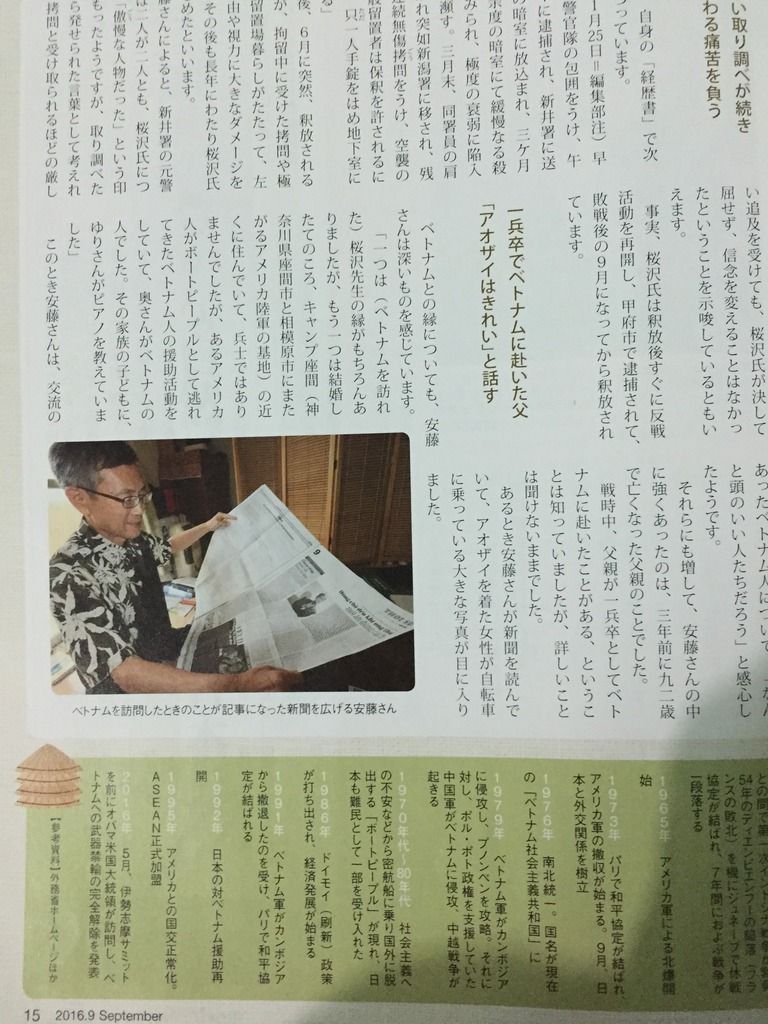 い取り調べが続き
わる痛苦を負う
自身の「経歴書」で次
っています。
1月25日＝編集部注）早
警官隊の包囲をうけ、午
に逮捕され、新井署に送
の暗室に放込まれ、三ケ月
余度の暗室にて緩慢なる殺
みられ、極度の衰弱に陥入
瀕す。三月末、同署員の肩
れ突如新潟署に移され、残
連続無傷拷問をうけ、空襲の
般留置者は保釈を許されるに
只一人手錠をはめ地下室に
る」
後、6月に突然、釈放される
が、拘留中に受けた拷問や極
留置場暮らしがたたって、左
由や視力に大きなダメージを
その後も長年にわたり桜沢氏
めたといいます。
藤さんによると、新井署の元警
は二人が二人とも、桜沢氏につ
「傲慢な人物だった」という印
もったようですが、取り調べた
ら発せられた言葉として考えれ
拷問と受け取られるほどの厳し
い追及を受けても、桜沢氏が決して
屈せず、信念を変えることはなかっ
たということを示唆しているともい
えます。
事実、桜沢氏は釈放後すぐに反戦
活動を再開し、甲府市で逮捕されて、
敗戦後の9月になってから釈放され
ています。
一兵卒でベトナムに赴いた父
「アオザイはきれい」と話す
ベトナムとの縁についても、安藤
さんは深いものを感じています。
「一つは（ベトナムを訪れ
た）桜沢先生の縁がもちろんあ
りましたが、もう一つは結婚し
たてのころ、キャンプ座間（神
奈川県座間市と相模原市にまた
がるアメリカ陸軍の基地）の近
くに住んでいて、兵士ではあり
ませんでしたが、あるアメリカ
人がボートピープルとして逃れ
てきたベトナム人の援助活動を
していて、奥さんがベトナムの
人でした。その家族の子どもに、
ゆりさんがピアノを教えていま
した」
このとき安藤さんは、交流の
あったベトナム人について「なん
と頭のいい人たちだろう」と感心し
たようです。
それらにも増して、安藤さんの中
に強くあったのは、三年前に九二歳
で亡くなった父親のことでした。
戦時中、父親が一兵卒としてベト
ナムに赴いたことがある、というこ
とは知っていましたが、詳しいこと
は聞けないままでした。
あるとき安藤さんが新聞を読んで
いて、アオザイを着た女性が自転車
に乗っている大きな写真が目に入り
ました。
9
ベトナムを訪問したときのことが記事になった新聞を広げる安藤さん
54年のディエンビエンフーの陥落（フラ
ンスの敗北）を機にジュネーブで休戦
協定が結ばれ、7年間におよぶ戦争が
一段落する
1965年 アメリカ軍による北爆開
始
1973年 パリで和平協定が結ばれ、
アメリカ軍の撤収が始まる。9月、日
本と外交関係を樹立
1976年 南北統一。国名が現在
の「ベトナム社会主義共和国」に
1979年 ベトナム軍がカンボジア
に侵攻し、プノンペンを攻略。それに
対し、ポル・ポト政権を支援していた
中国軍がベトナムに侵攻、中越戦争が
起きる
1970年代～80年代 社会主義へ
の不安などから密航船に乗り国外に脱
出する「ボートピープル」が現れ、日
本も難民として一部を受け入れた
1986年 ドイモイ（刷新）政策
が打ち出され、経済発展が始まる
1991年 ベトナム軍がカンボジア
から撤退したのを受け、パリで和平協
定が結ばれる
1992年 日本の対ベトナム援助再
開
1995年 アメリカとの国交正常化。
ASEAN正式加盟
2016年 5月、伊勢志摩サミット
を前にオバマ米国大統領が訪問し、ベ
トナムへの武器禁輸の完全解除を発表
【参考資料】外務省ホームページほか
15 2016.9 September